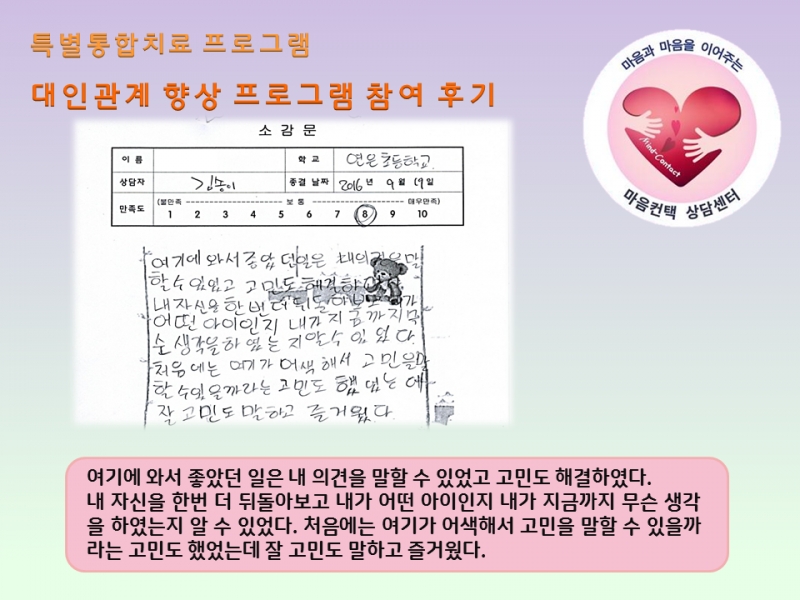 특별통합치료 프로그램
대인관계 향상 프로그램 참여 후기
마음과 마음을 이어주는
Mind-Contact
마음컨택 상담센터
소 감 문
이 름 학 교 연은초등학교
상담자 김송이 종결 날짜 2016년 9월 19일
만족도 (불만족 보 통 매우만족)
1 2 3 4 5 6 7 8 9 10
여기에 와서 좋았던일은 내의견을말
할수있었고 고민도 해결하
내자신을 한번 더 뒤돌아보고 내가
어떤 아이인지 내가 지금까지 무
슨 생각을 하였는지 알 수 있었다.
처음에는 여기가 어색해서 고민을말
할수있을까라는 고민도 했었는데
잘 고민도 말하고 즐거웠다.
여기에 와서 좋았던 일은 내 의견을 말할 수 있었고 고민도 해결하였다.
내 자신을 한번 더 뒤돌아보고 내가 어떤 아이인지 내가 지금까지 무슨 생각
을 하였는지 알 수 있었다. 처음에는 여기가 어색해서 고민을 말할 수 있을까
라는 고민도 했었는데 잘 고민도 말하고 즐거웠다.